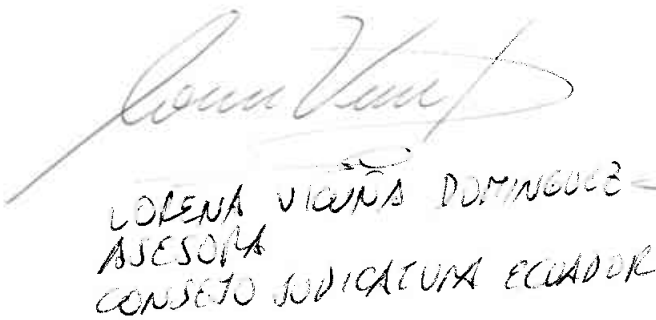 LORENA VICUÑA DOMINGUEZ
ASESORA
CONSEJO JUDICATURA ECUADOR